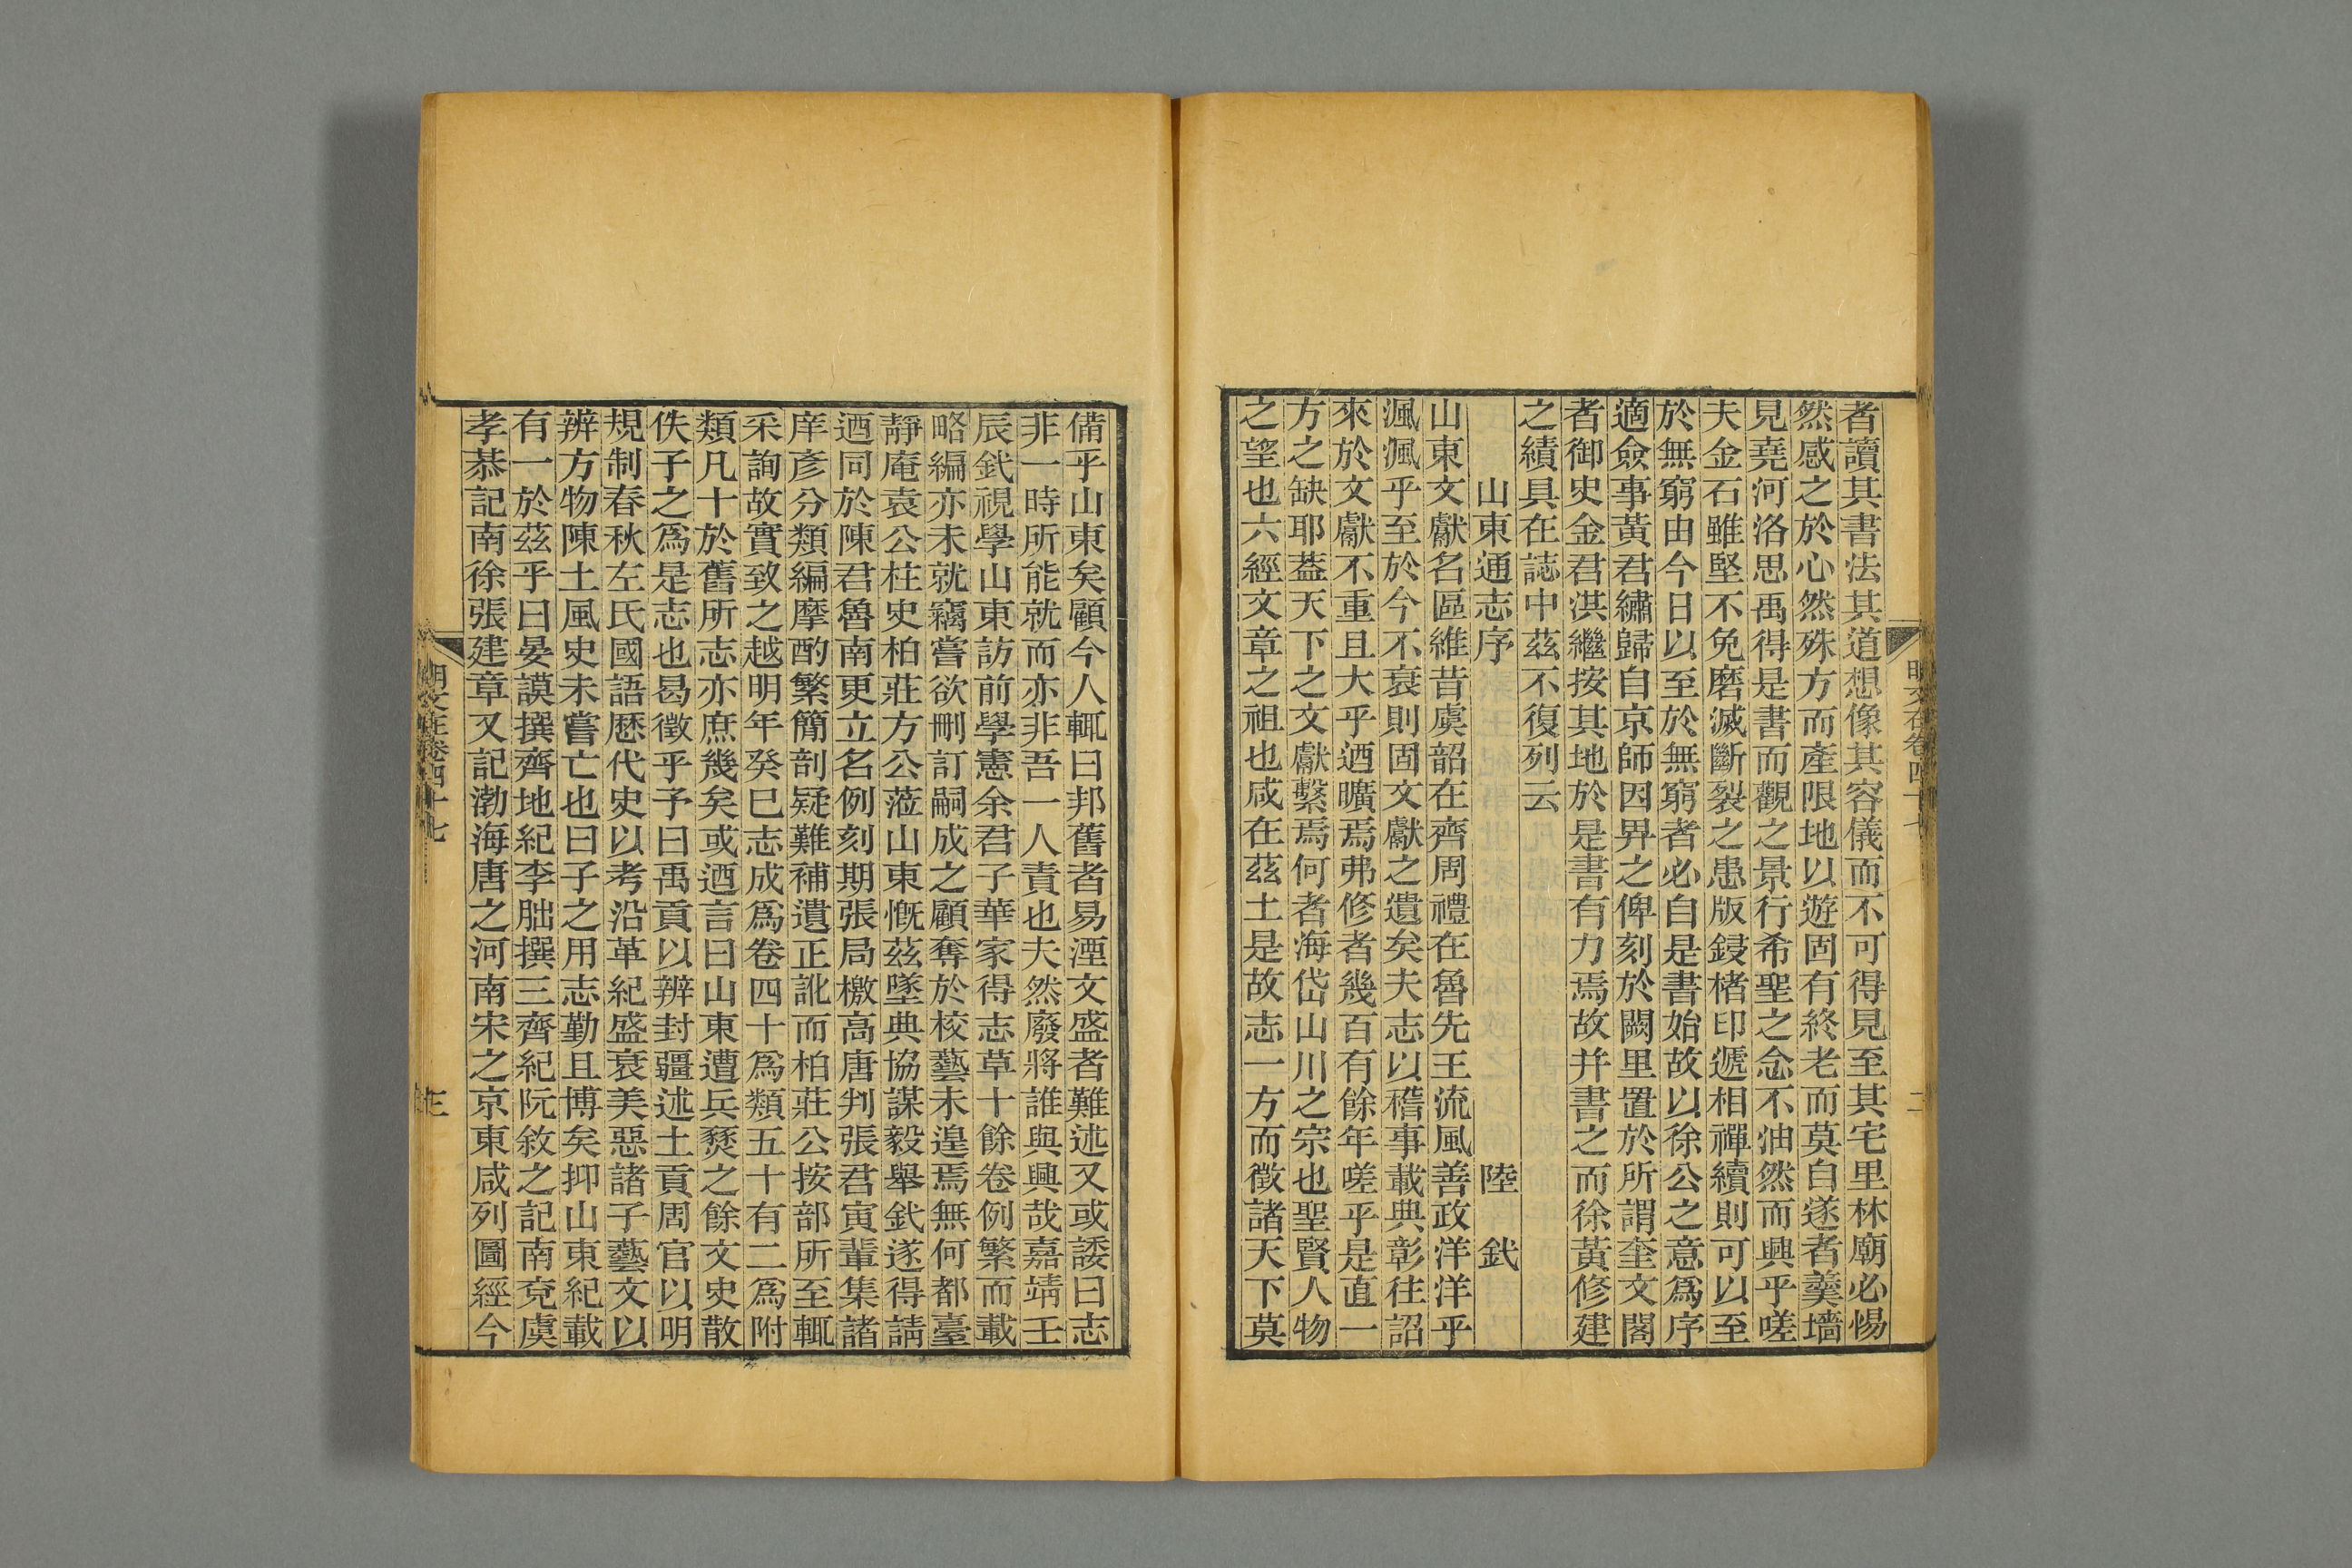 者讀其書法其道想像其容儀而不可得見至其宅里林廟必惕
然感之於心然殊方而產限地以遊固有終老而莫自遂者羹墻
見堯河洛思禹得是書而觀之景行希聖之念不油然而興乎嗟
夫金石雖堅不免磨滅斷裂之患版鋟楮印遞相禪續則可以至
於無窮由今日以至於無窮者必自是書始故以徐公之意爲序
適僉事黃君繡歸自京師因畀之俾刻於闕里置於所謂奎文閣
者御史金君淇繼按其地於是書有力焉故并書之而徐黃修建
之績具在誌中茲不復列云
山東通志序 陸 釴
山東文獻名區維昔虞韶在齊周禮在魯先王流風善政洋洋乎
渢渢乎至於今不衰則固文獻之遺矣夫志以稽事載典彰往詔
來於文獻不重且大乎迺曠焉弗修者幾百有餘年嗟乎是直一
方之缺耶葢天下之文獻繫焉何者海岱山川之宗也聖賢人物
之望也六經文章之祖也咸在茲土是故志一方而徵諸天下莫
明文在卷四十七
二
備乎山東矣顧今人輒曰邦舊者易湮文盛者難述又或諉曰志
非一時所能就而亦非吾一人責也夫然廢將誰與興哉嘉靖壬
辰釴視學山東訪前學憲余君子華家得志草十餘卷例繁而載
略編亦未就竊嘗欲刪訂嗣成之顧奪於校藝未遑焉無何都臺
靜庵袁公柱史柏莊方公蒞山東慨茲墜典協謀毅舉釴遂得請
迺同於陳君魯南更立名例刻期張局檄高唐判張君寅輩集諸
庠彥分類編摩酌繁簡剖疑難補遺正訛而柏莊公按部所至輒
采詢故實致之越明年癸巳志成爲卷四十爲類五十有二爲附
類凡十於舊所志亦庶幾矣或迺言曰山東遭兵燹之餘文史散
佚子之爲是志也曷徵乎予曰禹貢以辨封疆述土貢周官以明
規制春秋左氏國語歷代史以考沿革紀盛衰美惡諸子藝文以
辨方物陳土風史未嘗亡也曰子之用志勤且博矣抑山東紀載
有一於茲乎曰晏謨撰齊地紀李朏撰三齊紀阮敘之記南兗虞
孝恭記南徐張建章又記渤海唐之河南宋之京東咸列圖經今
明文在卷四十七
三